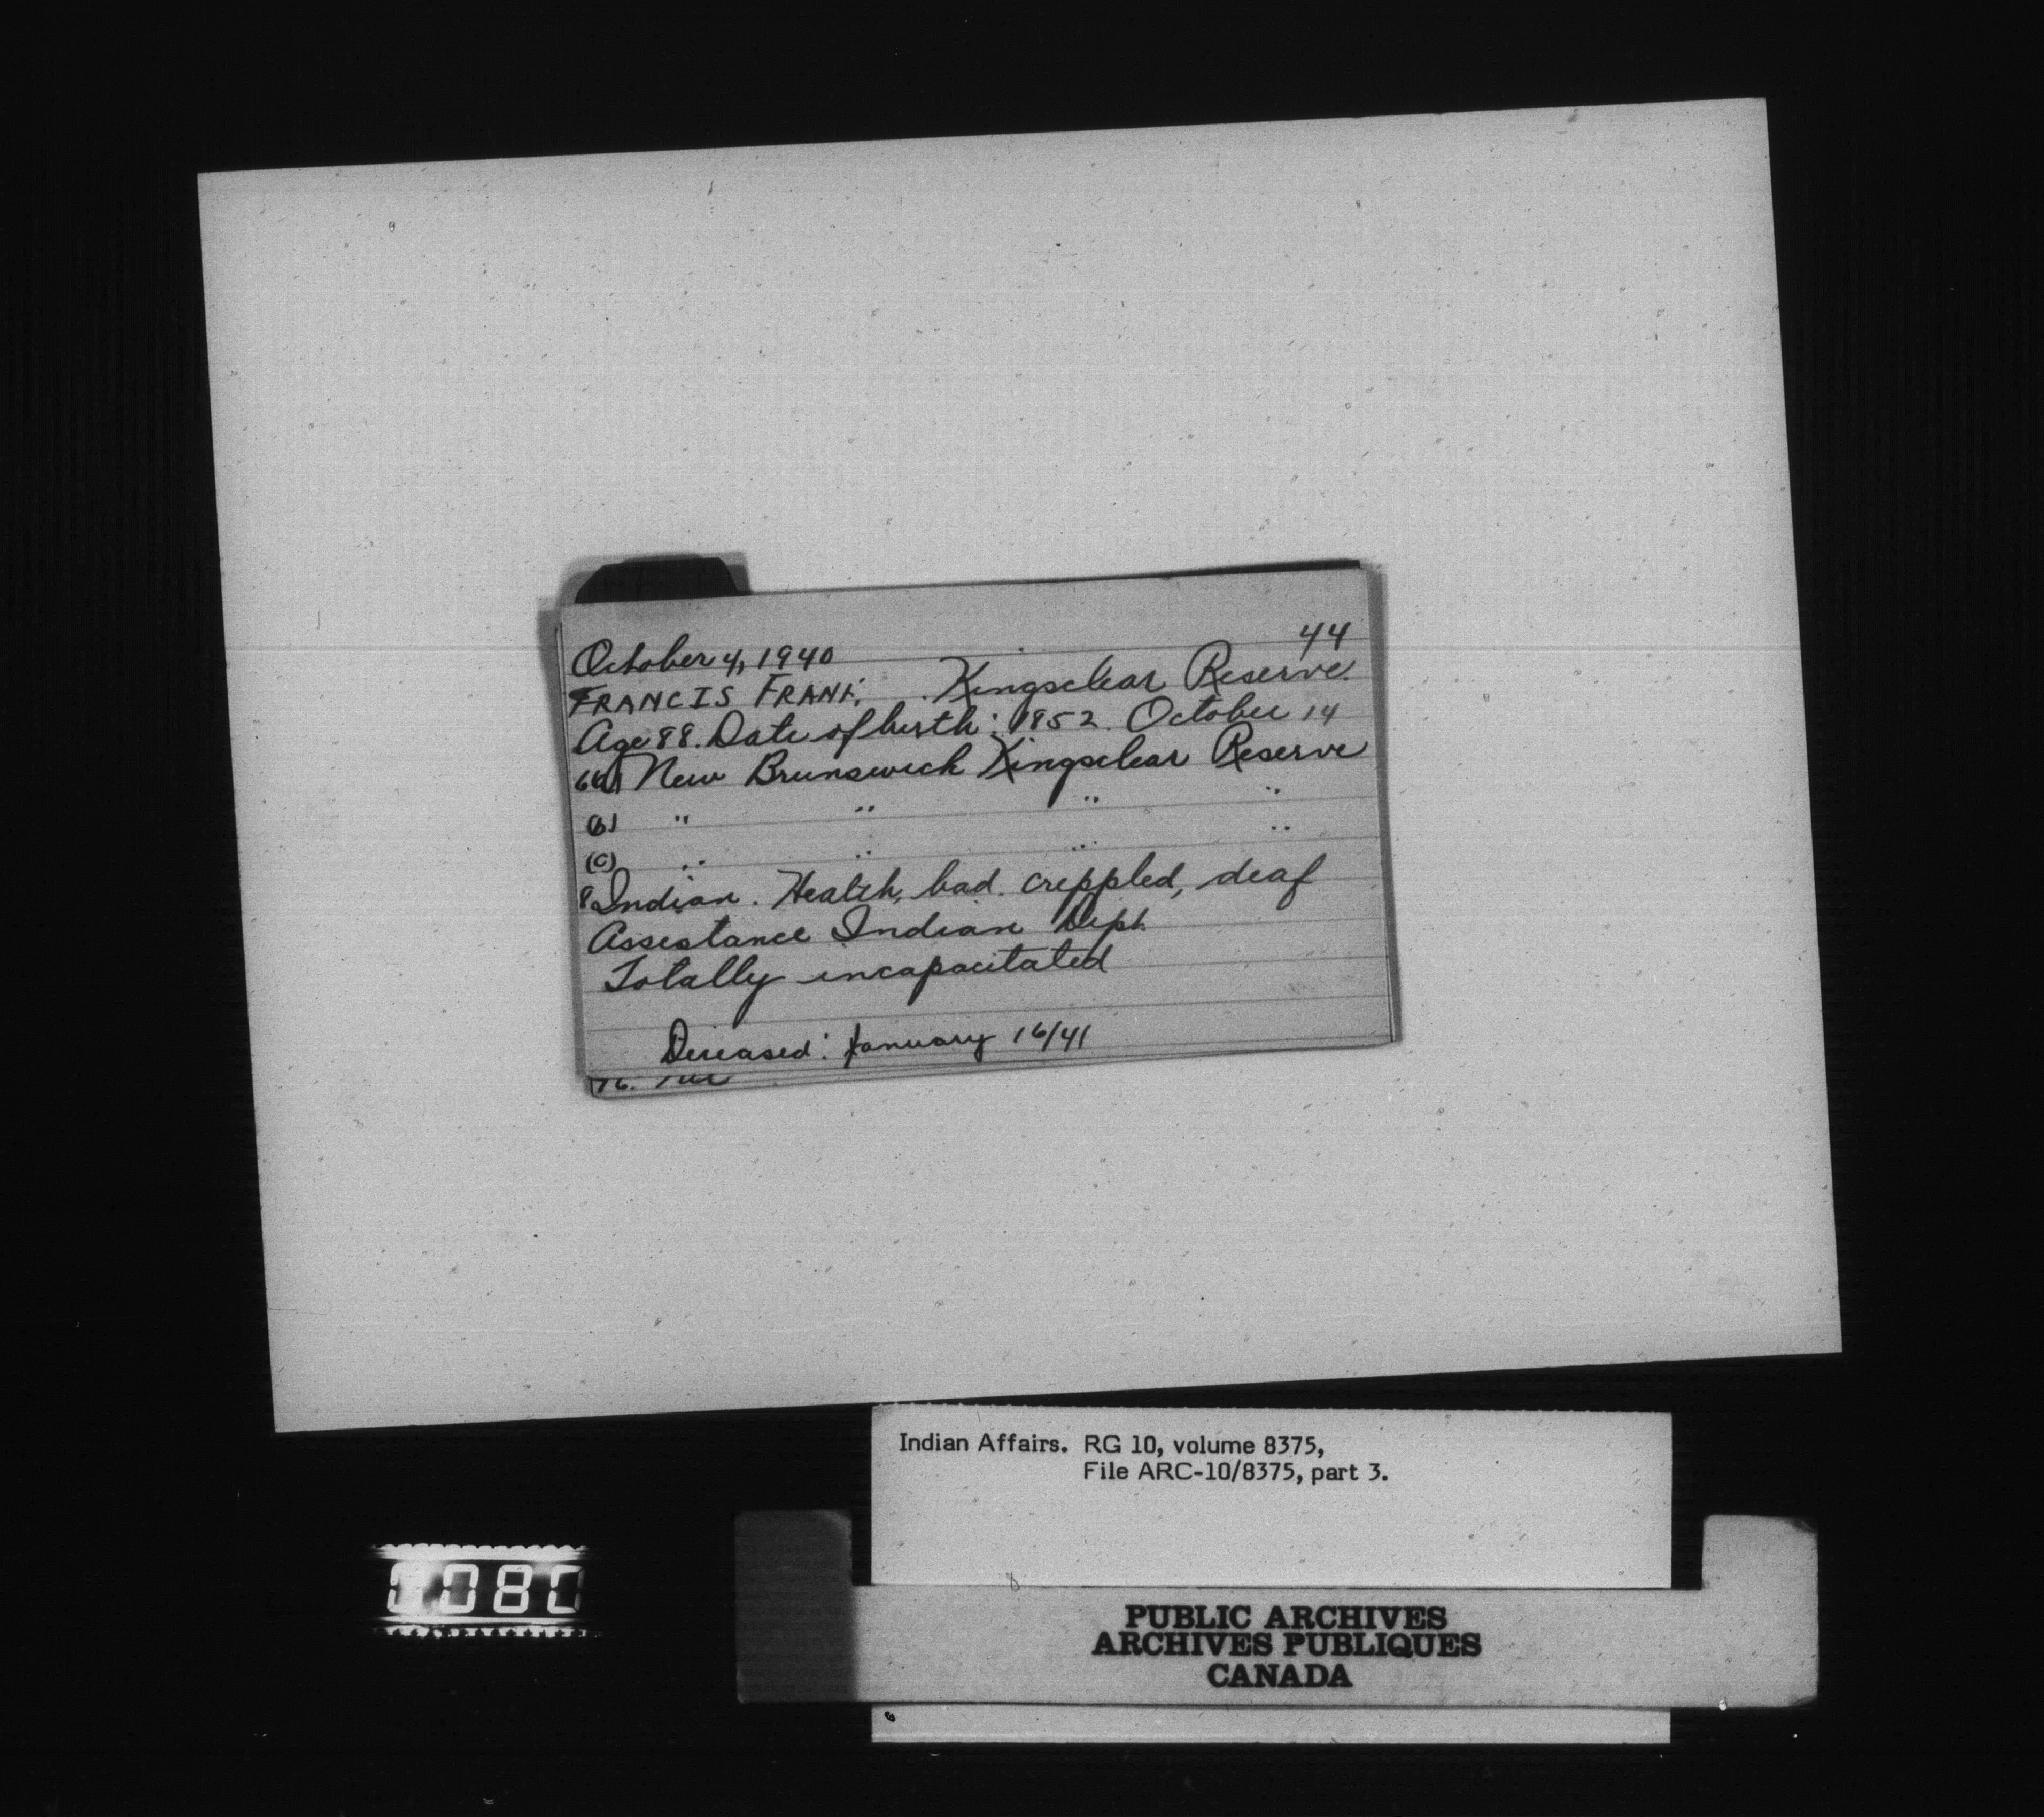 44
October 4, 1940
FRANCIS FRANK. Kingsclear Reserve.
Age 88. Date of birth: 1852. October 14
6(a) New Brunswick Kingsclear Reserve
(b) " " " "
(c) " " " "
8 Indian. Health, bad. crippled, deaf
Assistance Indian Dept.
Totally incapacitated
Deceased: January 16/41
Indian Affairs. RG 10, volume 8375,
File ARC-10/8375, part 3.
080
PUBLIC ARCHIVES
ARCHIVES PUBLIQUES
CANADA